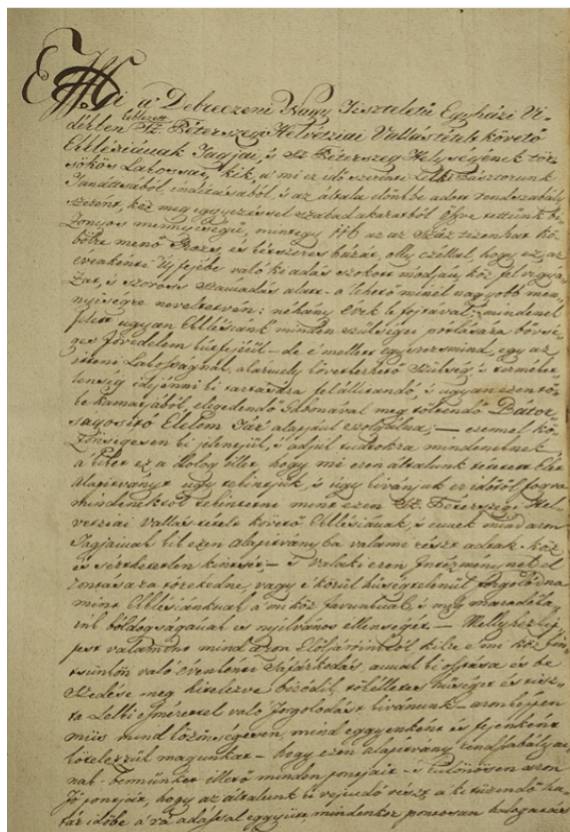 Mi a' Debreczeni Nagy Tiszteletű Egyházi Vi-
dékben kebelezett Sz. Péterszegi Helvétziai Vallástételt követő
Ekklésiának Tagjai, s Sz. Péterszeg Helységének tör-
sökös Lakossai, kik, a' mi ez idő szerinti Lelki Pásztorunk
Javallásából, indításából, s az általa előnkbe adott rendszabály
szerént, kéz meg egyezéssel szabad akaratból öszve tettünk bi-
zonyos mennyiségű, mintegy 116 az az Száz tizenhat kö-
bölre menő Rozs, és kétszeres búzát, olly czéllal, hogy ez, az
évenkénti Új fejébe való ki adás szokott módján, köz fel vigyá-
zat, és szoross Számadás alatt – a lehető minél nagyobb men-
nyiségre neveltetvén; néhány évek le folytával; mindenek
felett ugyan Ekklésiánk minden szükségei pótlására bővsé-
ges jövedelem kútfejéül – de e' mellett egyszersmind, egy az
itteni Lakosságnak, akármely következhető Szükség s termeket-
lenség idejeni ki tartására felállítandó, s ugyan ezen tő-
ke kamatjából elegedendő Gabonával meg töltendő Bátor-
ságosító Élelem Tár alapjául szolgáljon; – ezennel kö-
zönségesen ki jelentjük, s adjuk tudtokra mindeneknek
a' kiket ez a' dolog illet, hogy mi ezen általunk
alapítványt úgy tekintjük, s úgy kívánjuk ez időtől fogva
mindenektől tekintetni mint ezen Sz. Péterszegi Hel-
vétziai Vallástételt követő Ekklésiának, s ennek mind azon
Tagjainak kik ezen alapítványba valami részt adtak – köz
és sérthetetlen kintsét – s valaki ezen Intézményünk el
rontására törekedne, vagy e' körül hűségtelenül forgolódna
mint Ekklésiánknak a' mi köz javunknak, s meg maradék-
ink bóldogságának is nyilvános ellenségét. – Mellyhez ké-
pest valamint mind azon Elöljáróinktól kikre e' mi köz kin-
tsünkön való évenkénti Sáfárkodás annak ki osztása és be
szedése meg hitelezve bízódik, tökélletes hűséget és tisz-
ta Lelki esmérettel való forgolódást kívánunk – azonképen
mi is mind közönségesen, mind egyenként és fejenként
kötelezzük magunkat – hogy ezen alapítvány rendszabályai-
nak – bennünket illető minden pontjait – s különösen azon
Jó pontját, hogy az általunk ki vejendő részt a' ki tűzendő ha-
tár időbe a' rá adással együtt mindenkor pontosan